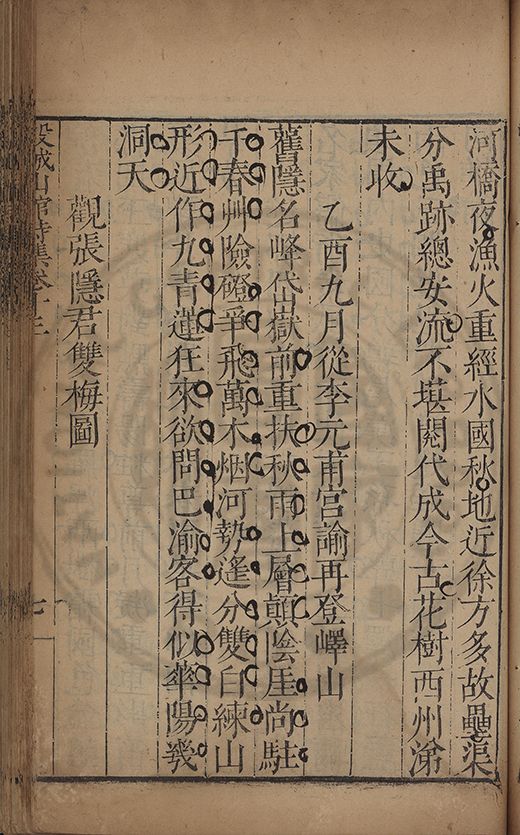 河橋夜漁火重經水國秋地近徐方多故壘渠
分禹跡總安流不堪閱代成今古花樹西州涕
未收
乙酉九月從李元甫宮諭再登嶧山
舊隱名峰岱嶽前重扶秋雨上層顛陰厓尚駐
千春艸險磴爭飛萬木烟河勢遙分雙白練山
形近作九青蓮狂來欲問巴渝客得似華陽㡬
洞天
觀張隱君雙梅圖
穀城山館詩集卷十三
七